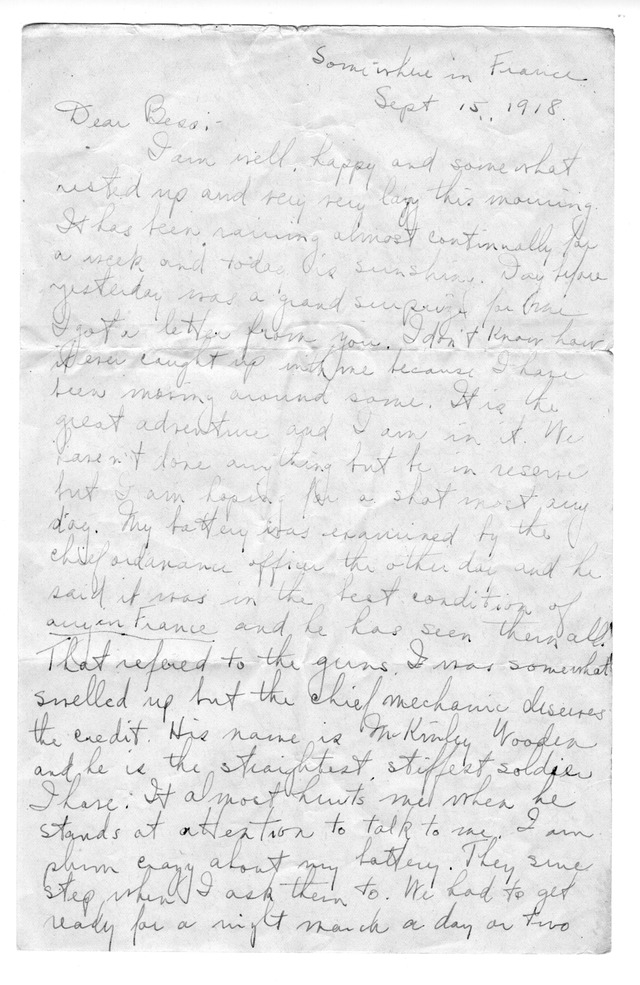 Somewhere in France
Sept 15, 1918.
Dear Bess:-
I am well, happy and somewhat
rested up and very very lazy this morning.
It has been raining almost continually for
a week and today is sunshiny. Day before
yesterday was a grand surprize for me
I got a letter from you. I don't know how
it ever caught up with me because I have
been moving around some. It is the
great adventure and I am in it. We
haven't done anything but be in reserve
but I am hoping for a shot most any
day. My battery was examined by the
chief ordanance officer the other day and he
said it was in the best condition of
any in France and he has seen them all.
That refered to the guns. I was somewhat
swelled up but the chief mechanic deserves
the credit. His name is McKinley Wooden
and he is the straightest, stiffest soldier
I have. It almost hurts me when he
stands at attention to talk to me. I am
plum crazy about my battery. They sure
step when I ask them to. We had to get
ready for a night march a day or two